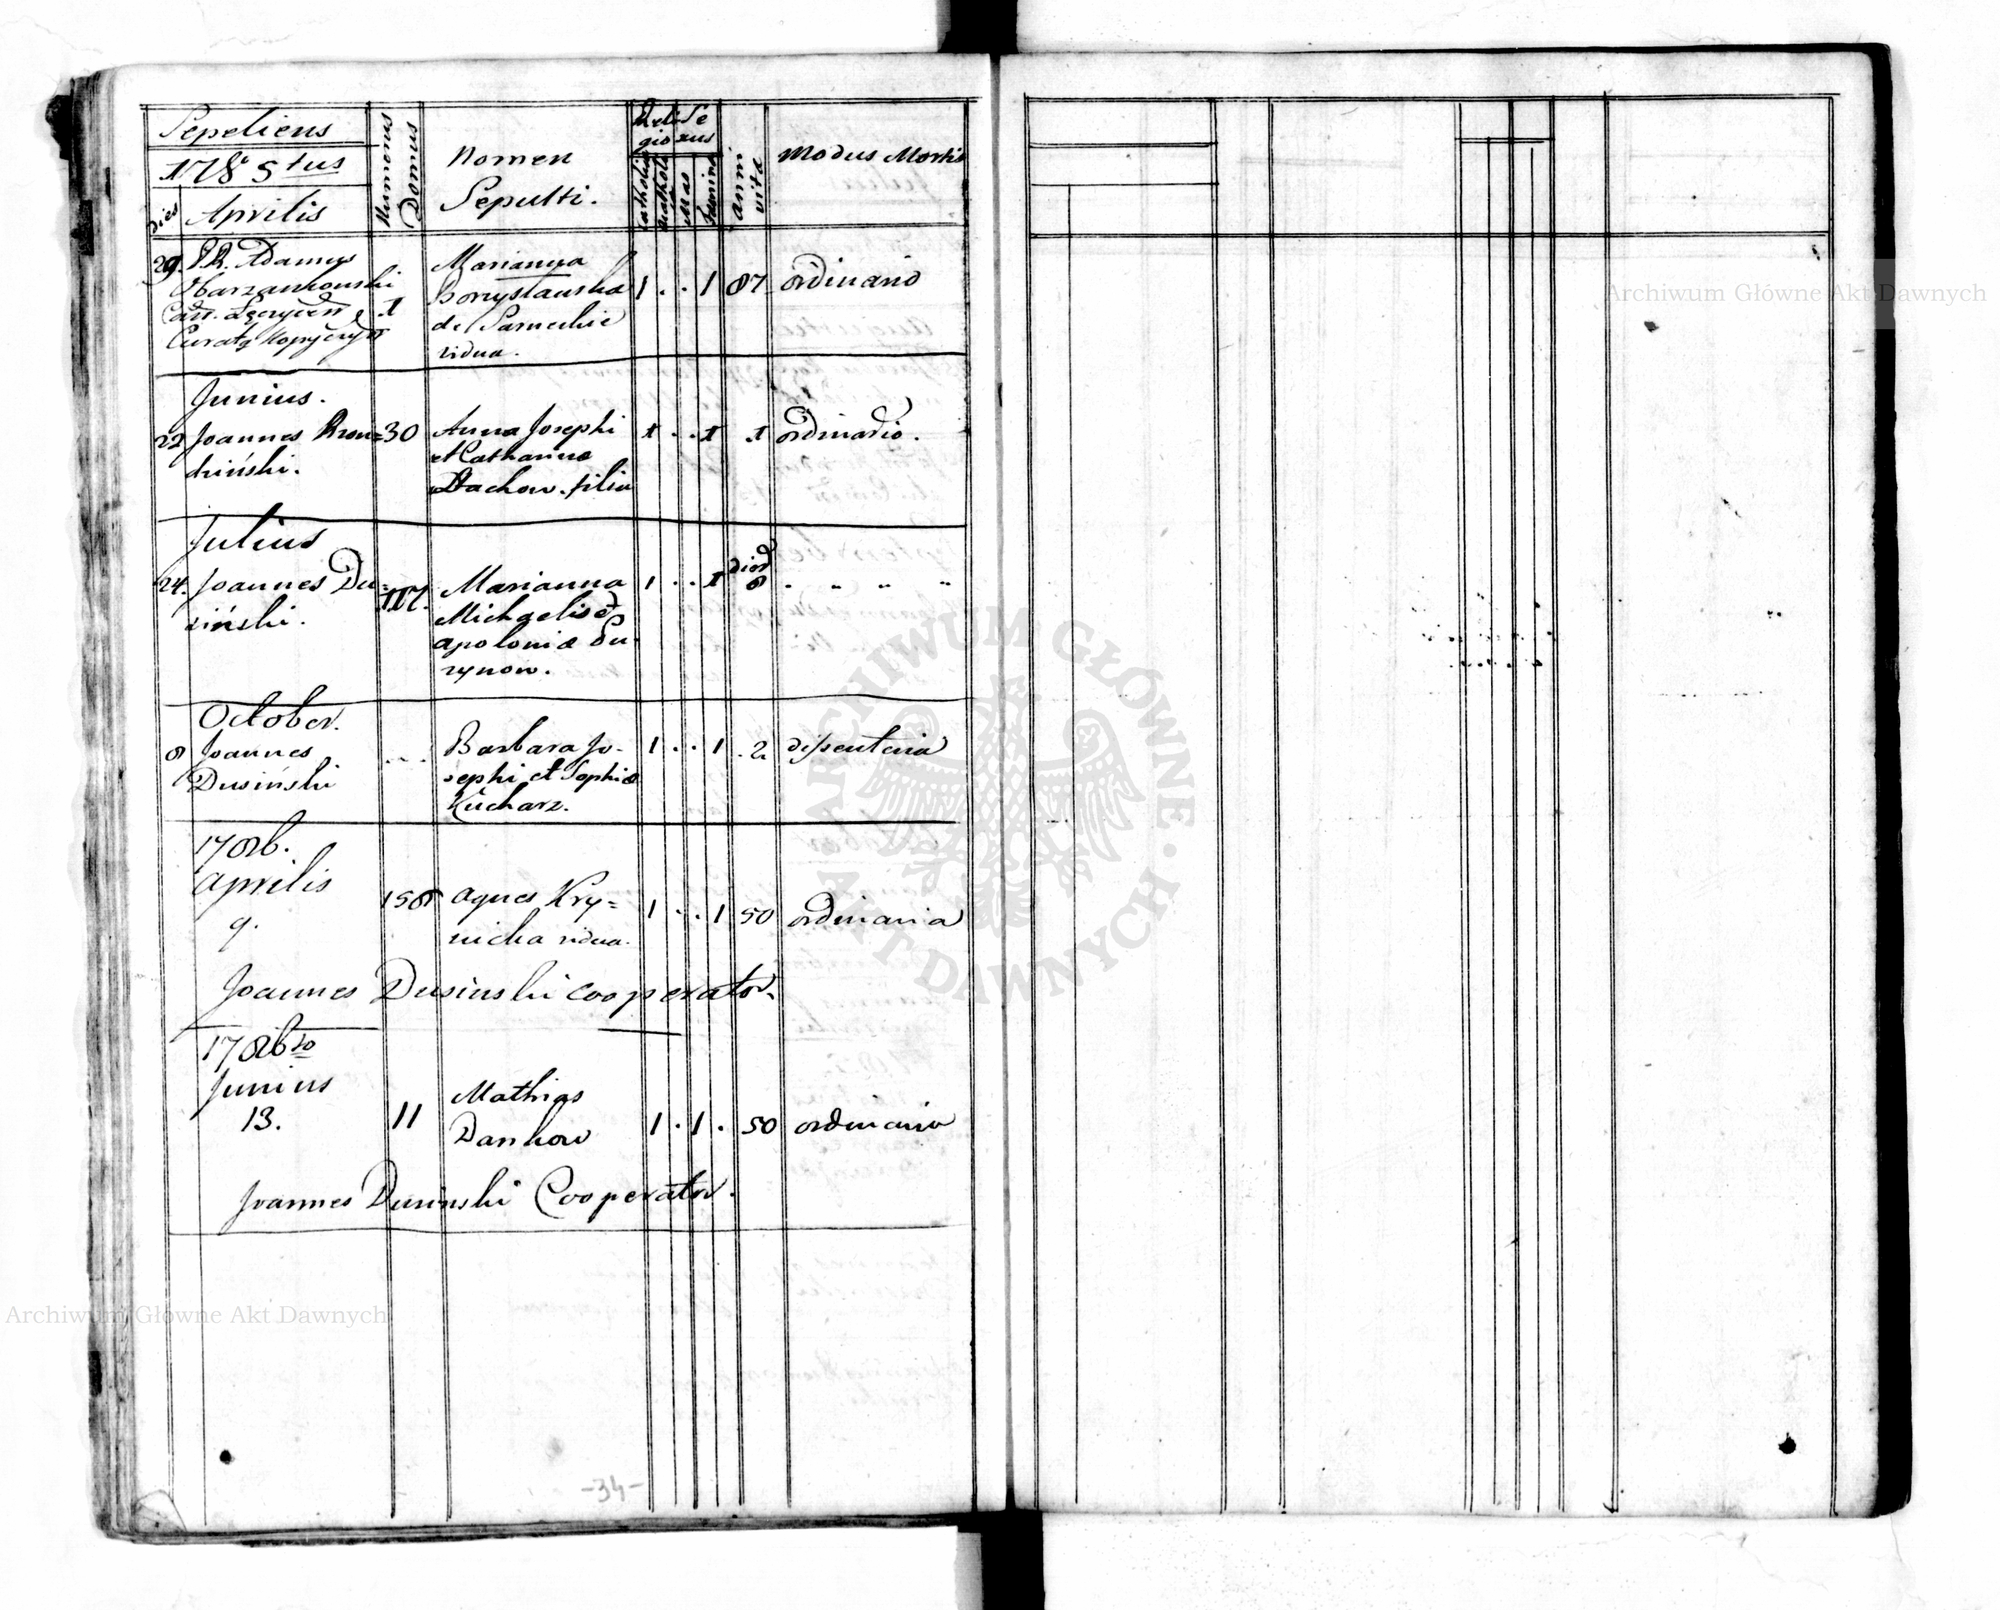 Sepeliens
178 5tus
dies
Aprilis
Numerus
Domus
Nomen
Sepulti.
Reli
gio
Se
xus
Catholi
Mas
Femina
anni
vitæ
Modus Mortis
29. Adamus
Obarzankowski
1
Marianna
de
vidua.
1 . . 1 87 ordinario
Junius.
22 Joannes
30
Anna Josephi
et Catharinæ
Stachow. filia
1 . . 1 1 ordinario.
Julius
24. Joannes Du=
siński.
117.
Marianna
Michaelis et
apoloniæ Du
rynow.
1 . . 1 dier
8
October.
8 Joannes
Dusiński
Barbara Jo-
sephi et Sophiæ
Kucharz.
1 . . 1 . 2 dissenteria
1786.
Aprilis
9.
158
Agnes Kry=
nicka vidua.
1 . . 1 50 ordinaria
Joannes Dusinski cooperator.
1786to
Junius
13.
11
Mathias
Dankow
1 . 1 . 50 ordinaria
Joannes Dusinski Cooperator.
-34-
Archiwum Główne Akt Dawnych
Archiwum Główne Akt Dawnych
ARCHIWUM GŁÓWNE AKT DAWNYCH